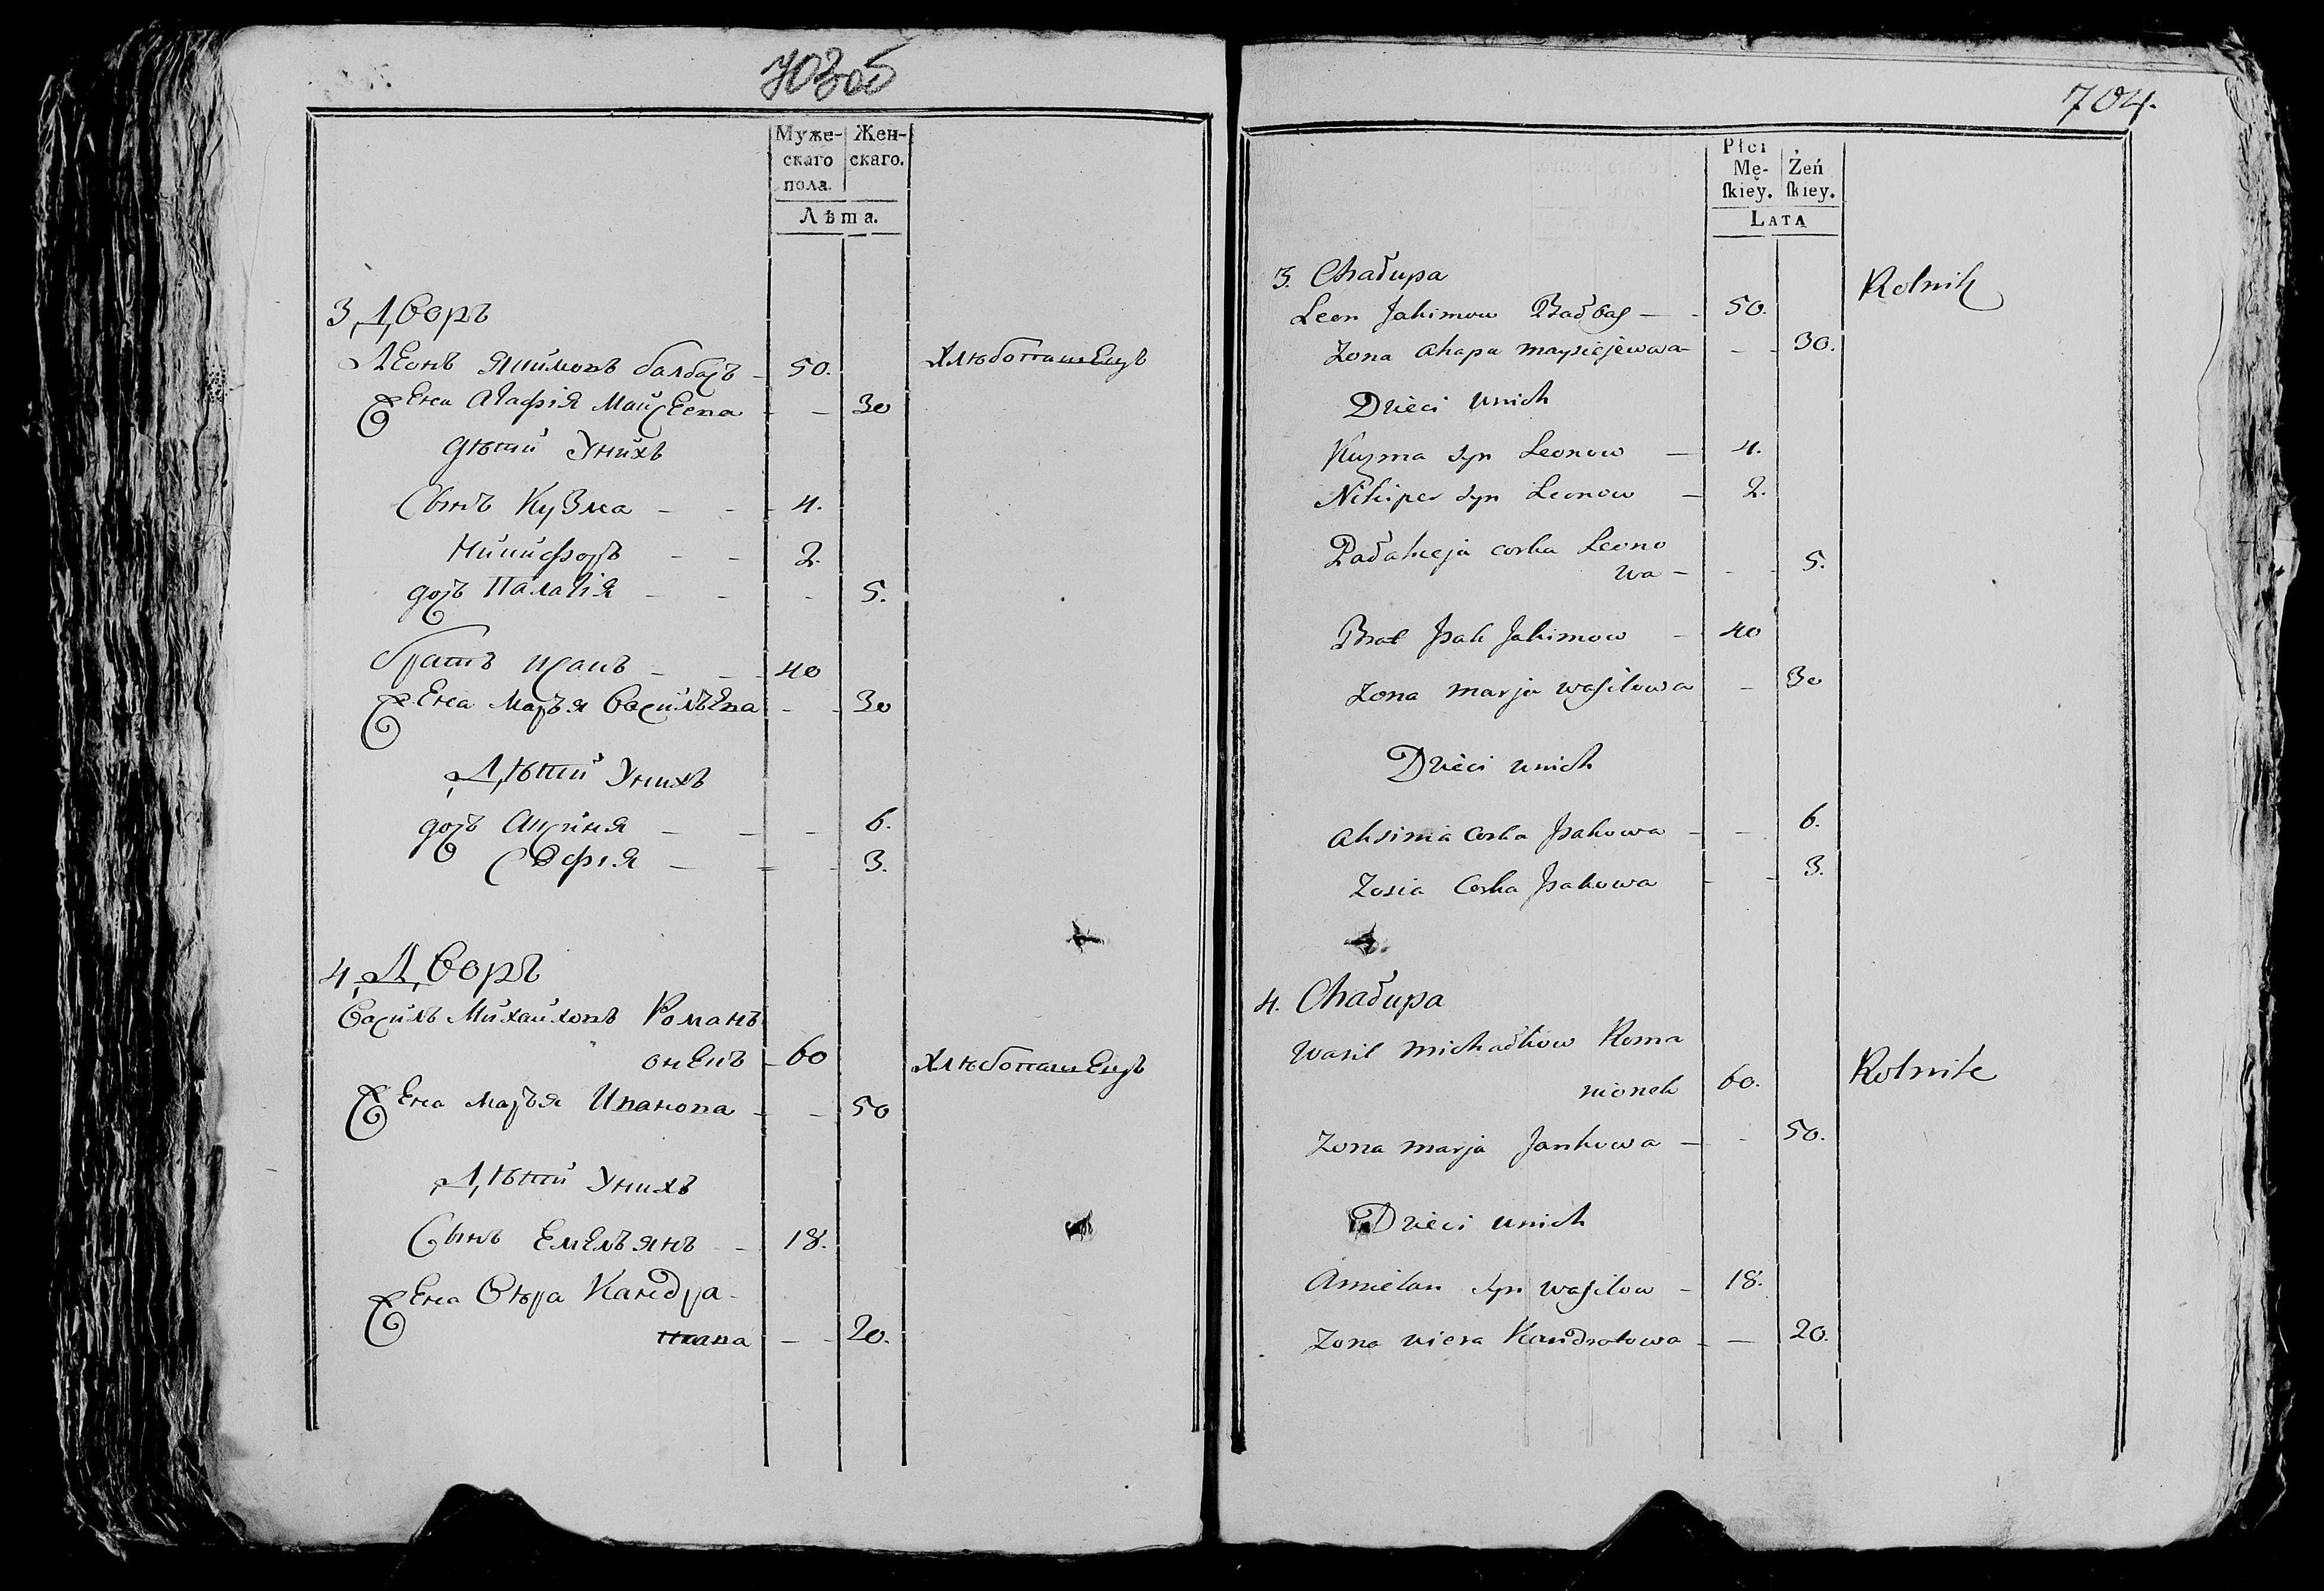 703об
Муже-
скаго
пола.
Жен-
скаго.
Лѣта.
3 Дворъ
Леонъ Якимовъ балбасъ - 50.
хлѣбопашецъ
жена Агафія Майсеева - - 30
дѣти Унихъ
Сынъ Кузма - - - 4.
Никифоръ - - 2.
дочь Палагія - - - 5.
братъ Исакъ - - - 40
жена Марья Васильева - - 30
Дѣти Унихъ
дочь Аксиня - - - 6.
Софія - - - 3.
4 Дворъ
Василь Михайловъ Роман
онекъ - 60
хлѣбопашецъ
жена Марья Иванова - - 50
Дѣти Унихъ
Сынъ Емельянъ - 18.
жена Вѣра Кандра-
това - - 20.
704.
Płci
Mę-
ſkiey.
Żeń
ſkiey.
LATA
3. Chałupa
Rolnik
Leon Jakimow Bałbas - - 50.
Zona Ahapa Maysiejewa - - - 30.
Dzieci unich
Kuzma syn Leonow - 4.
Nikiper syn Leonow - 2.
Pałaheja corka Leono
wa - - - 5.
Brat Jsak Jakimow - 40
Zona Marja Wasilowa - 30
Dzieci unich
Aksinia Corka Jsakowa - - 6.
Zosia Corka Jsakowa - - 3.
4. Chałupa
Wasil Michałkow Roma
nionek 60.
Rolnik
Zona Marja Jankowa - - 50.
Dzieci unich
Amielan syn Wasilow - 18.
Zona Wiera Kandratowa - - 20.